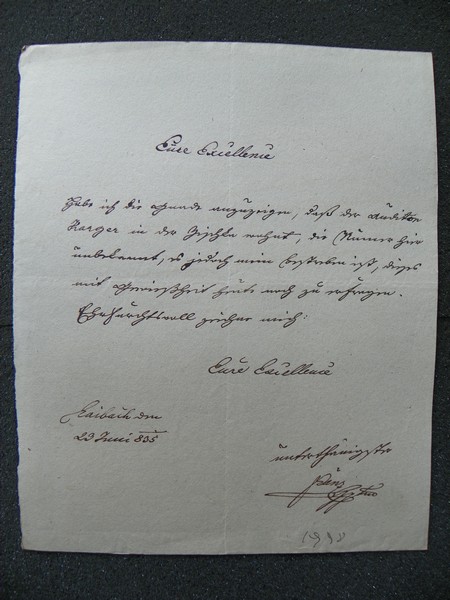 Eure Excellence
Habe ich die Gnade anzuzeigen, daß der Auditor
Karger in der Gischka wohnt, die Numer hier
unbekannt, es jedoch mein bestreben ist, dieses
mit Gewießheit heute noch zu erfragen.
Ehrfurchtsvoll zeichne mich:
Eure Excellence
Laibach den
23 Juni 835
unterthänigster
1998